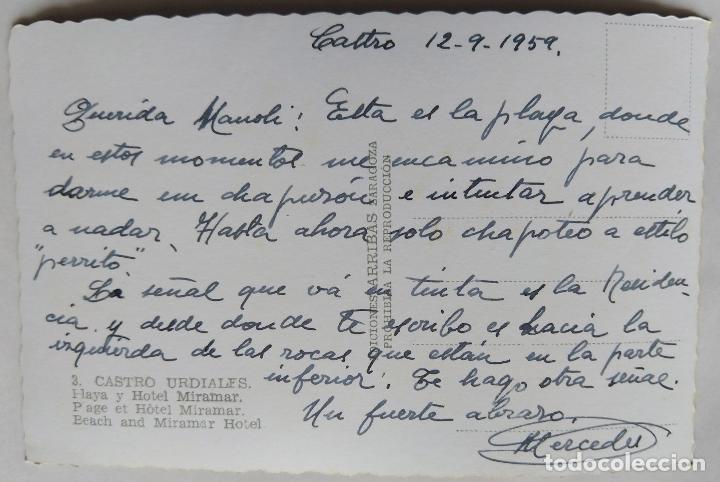 Castro 12-9-1959.
Querida Manoli: Esta es la playa, donde
en estos momentos me encamino para
darme un chapuzón e intentar aprender
a nadar. Hasta ahora solo chapoteo a estilo
"perrito"
La señal que vá en tinta es la Residen-
cia y desde donde te escribo es hacia la
izquierda de las rocas que están en la parte
inferior. Te hago otra señal.
Un fuerte abrazo.
Mercedes
3. CASTRO URDIALES.
Playa y Hotel Miramar.
Plage et Hôtel Miramar.
Beach and Miramar Hotel
EDICIONES ARRIBAS ZARAGOZA
PROHIBIDA LA REPRODUCCIÓN
todocoleccion